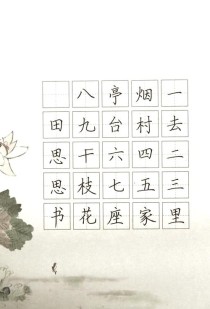 一去二三里
烟村四五家
亭台六七座
八九干枝花
田思思书